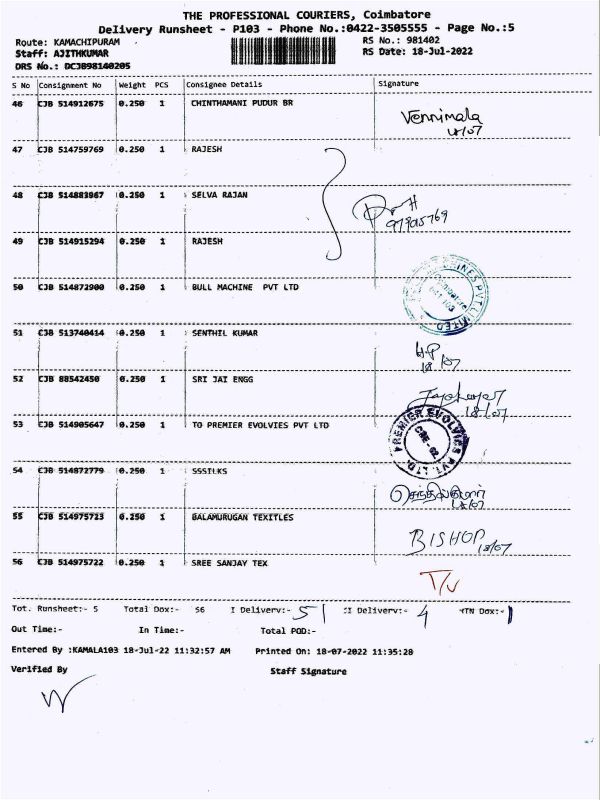 THE PROFESSIONAL COURIERS, Coimbatore
Delivery Runsheet - P103 - Phone No.:0422-3505555 - Page No.:5
Route: KAMACHIPURAM RS No.: 981402
Staff: AJITHKUMAR RS Date: 18-Jul-2022
DRS No.: DCJB98140205
S No Consignment No Weight PCS Consignee Details Signature
46 CJB 514912675 0.250 1 CHINTHAMANI PUDUR BR
Vennimala
18/07
47 CJB 514759769 0.250 1 RAJESH
48 CJB 514883967 0.250 1 SELVA RAJAN
49 CJB 514915294 0.250 1 RAJESH
50 CJB 514872900 0.250 1 BULL MACHINE PVT LTD
51 CJB 513740414 0.250 1 SENTHIL KUMAR
18/07
52 CJB 88542450 0.250 1 SRI JAI ENGG
18/07
53 CJB 514905647 0.250 1 TO PREMIER EVOLVIES PVT LTD
PREMIER EVOLVICS PVT. LTD.
CBE-62
54 CJB 514872779 0.250 1 SSSILKS
செந்தில்குமார்
18/07
55 CJB 514975723 0.250 1 BALAMURUGAN TEXITLES
BISHOP 18/07
56 CJB 514975722 0.250 1 SREE SANJAY TEX
Tot. Runsheet:- 5 Total Dox:- 56 I Delivery:- 51 CI Delivery:- 4 MTN Dox:- 1
Out Time:- In Time:- Total POD:-
Entered By :KAMALA103 18-Jul-22 11:32:57 AM Printed On: 18-07-2022 11:35:28
Verified By Staff Signature